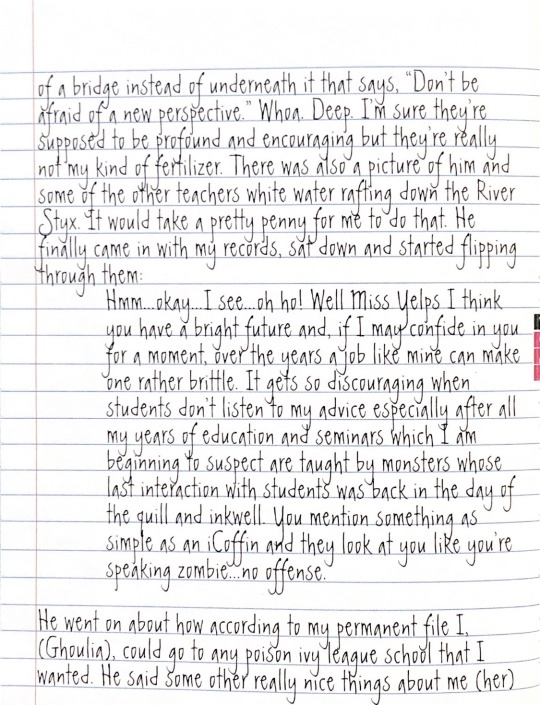 of a bridge instead of underneath it that says, "Don't be
afraid of a new perspective." Whoa. Deep. I'm sure they're
supposed to be profound and encouraging but they're really
not my kind of fertilizer. There was also a picture of him and
some of the other teachers white water rafting down the River
Styx. It would take a pretty penny for me to do that. He
finally came in with my records, sat down and started flipping
through them:
Hmm...okay...I see...oh ho! Well Miss Yelps I think
you have a bright future and, if I may confide in you
for a moment, over the years a job like mine can make
one rather brittle. It gets so discouraging when
students don't listen to my advice especially after all
my years of education and seminars which I am
beginning to suspect are taught by monsters whose
last interaction with students was back in the day of
the quill and inkwell. You mention something as
simple as an iCoffin and they look at you like you're
speaking zombie...no offense.
He went on about how according to my permanent file I,
(Ghoulia), could go to any poison ivy league school that I
wanted. He said some other really nice things about me (her)